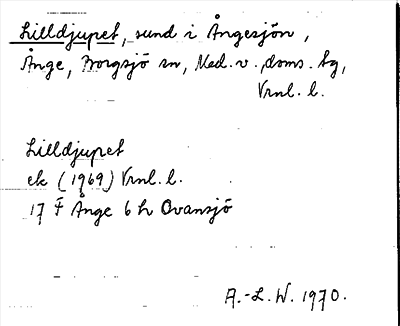 Lilldjupet, sund i Ångesjön,
Ånge, Borgsjö sn, Med. v. doms. tg,
Vrnl. l.
Lilldjupet
ek (1969) Vrnl. l.
17 F Ånge 6 h Ovansjö
A.-L. W. 1970.